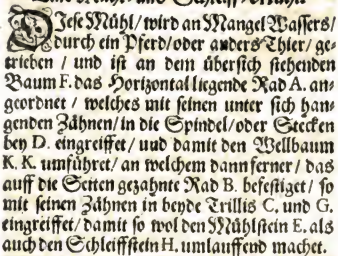 DIese Mühl/ wird an Mangel Wassers/
durch ein Pferd/ oder anders Thier/ ge-
trieben / und ist an dem übersich stehenden
Baum F. das Horizontal liegende Rad A. an-
geordnet / welches mit seinen unter sich han-
genden Zähnen/ in die Spindel/ oder Stecken
bey D. eingreiffet/ uud damit den Wellbaum
K. K. umführet/ an welchem dann ferner/ das
auff die Seiten gezahnte Rad B. befestiget/ so
mit seinen Zähnen in beyde Trillis C. und G.
eingreiffet/ damit so wol den Mühlstein E. als
auch den Schleiffstein H. umlauffend machet.